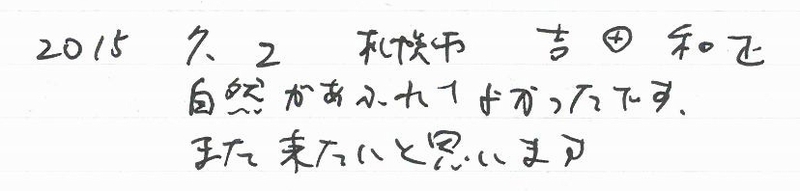 2015 7.2 札幌市 吉田 和正
自然があふれてよかったです.
また来たいと思います